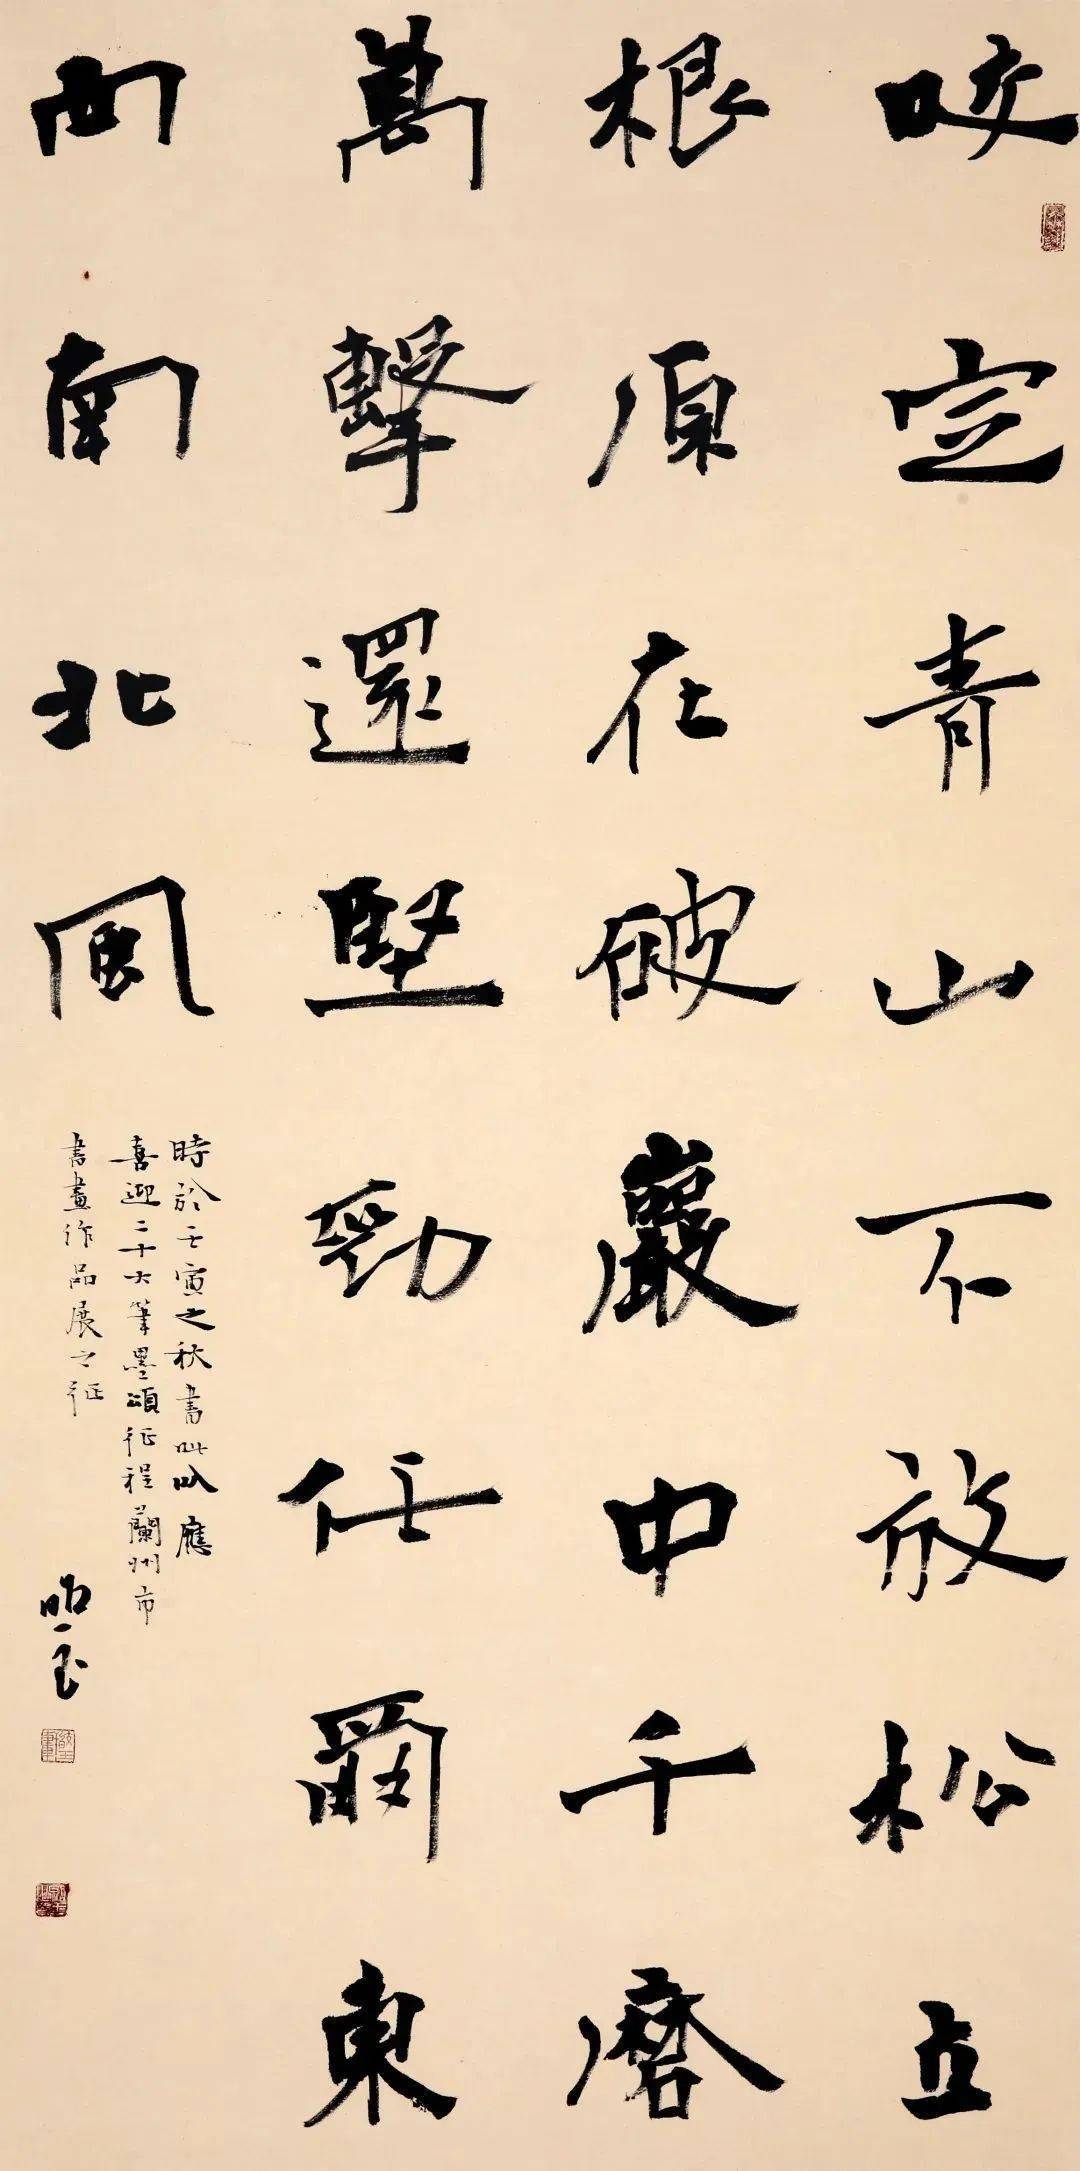 咬定青山不放松立
根原在破巖中千磨
萬擊還堅勁任爾東
西南北風
時於壬寅之秋書此以應
喜迎二十大筆墨頌征程蘭州市
書畫作品展之征